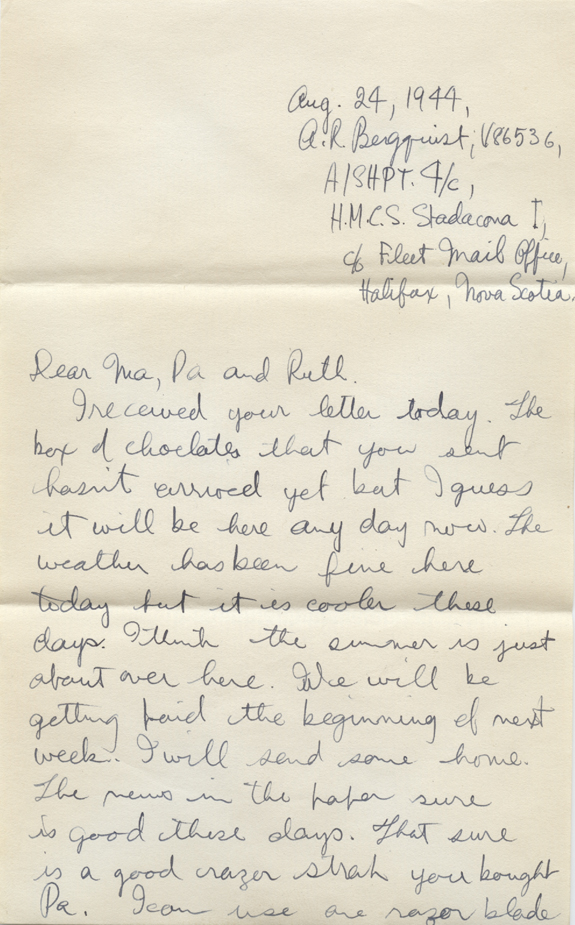 Aug. 24, 1944,
A.R. Bergquist, V86536,
A/SHPT. 4/c,
H.M.C.S. Stadacona I,
c/o Fleet Mail Office,
Halifax, Nova Scotia.
Dear Ma, Pa and Ruth.
I received your letter today. The
box of choclates that you sent
hasn't arrived yet but I guess
it will be here any day now. The
weather has been fine here
today but it is cooler these
days. I think the summer is just
about over here. We will be
getting paid the beginning of next
week. I will send some home.
The news in the paper sure
is good these days. That sure
is a good razer strap you bought
Pa. I can use one razor blade